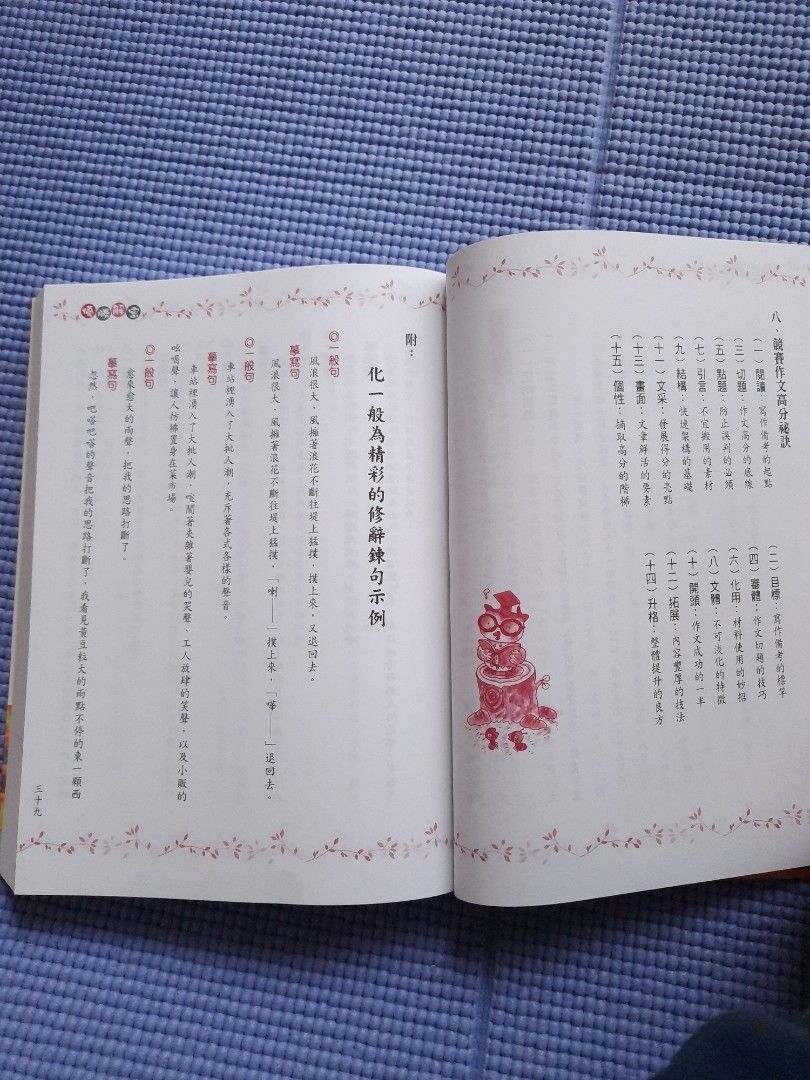 八、競賽作文高分祕訣
(一)閱讀：寫作備考的起點
(二)目標：寫作備考的標竿
(三)切題：作文高分的底線
(四)審體：作文切題的技巧
(五)點題：防止誤判的必須
(六)化用：材料使用的妙招
(七)引言：不宜搬用的素材
(八)文體：不可淡化的特徵
(九)結構：快速架構的基礎
(十)開頭：作文成功的一半
(十一)文采：發展得分的亮點
(十二)拓展：內容豐厚的技法
(十三)畫面：文章鮮活的要素
(十四)升格：整體提升的良方
(十五)個性：摘取高分的階梯
附：
化一般為精彩的修辭鍊句示例
◎一般句
風浪很大，風擁著浪花不斷往堤上猛撲，撲上來，又退回去。
摹寫句
風浪很大，風擁著浪花不斷往堤上猛撲，「唰——」撲上來，「嘩——」退回去。
◎一般句
車站裡湧入了大批人潮，充斥著各式各樣的聲音。
摹寫句
車站裡湧入了大批人潮，喧鬧著夾雜著嬰兒的哭聲、工人放肆的笑聲，以及小販的
吆喝聲，讓人彷彿置身在菜市場。
◎一般句
愈來愈大的雨聲，把我的思路打斷了。
摹寫句
忽然，吧嗒吧嗒的聲音把我的思路打斷了，我看見黃豆粒大的雨點不停的東一顆西
三十九